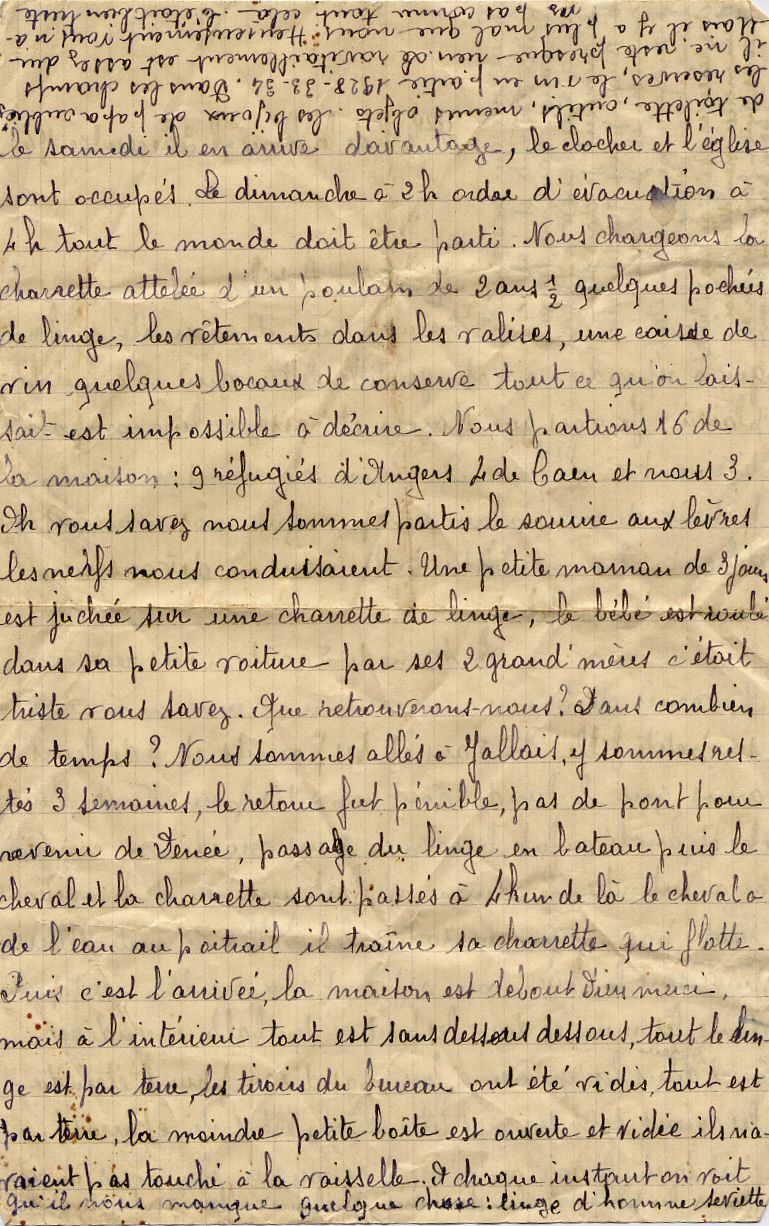 le samedi il en arrive davantage, le clocher et l'église
sont occupés. Le dimanche à 2h ordre d'évacuation à
4h tout le monde doit être parti. Nous chargeons la
charrette attelée d'un poulain de 2 ans ½ quelques pochées
de linge, les vêtements dans les valises, une caisse de
vin quelques bocaux de conserve tout ce qu'on lais-
sait est impossible à décrire. Nous partions 16 de
la maison : 9 réfugiés d'Angers 4 de Caen et nous 3.
Ah vous savez nous sommes partis le sourire aux lèvres
les nerfs nous conduisaient. Une petite maman de 3 jours
est juchée sur une charrette de linge, le bébé est roulé
dans sa petite voiture par ses 2 grand'mères c'était
triste vous savez. Que retrouverons-nous? Dans combien
de temps? Nous sommes allés à Jallais, y sommes res-
tés 3 semaines, le retour fut pénible, pas de pont pour
revenir de Denée, passage du linge en bateau puis le
cheval et la charrette sont passés à 4 km de là le cheval a
de l'eau au poitrail il traîne sa charrette qui flotte.
Puis c'est l'arrivée, la maison est debout Dieu merci,
mais à l'intérieur tout est sans dessous dessous, tout le lin-
ge est par terre, les tiroirs du bureau ont été vidés, tout est
par terre, la moindre petite boîte est ouverte et vidée ils n'a-
vaient pas touché à la vaisselle. A chaque instant on voit
qu'il nous manque quelque chose : linge d'homme serviette
de toilette, outils, menus objets. les bijoux de papa oubliés,
les réserves, le vin en partie 1928-33-34. Dans les champs
il ne reste presque rien. le ravitaillement est assez dur
Mais il y a plus mal que nous. Heureusement vous n'a-
vez pas connu tout cela. C'était bien triste